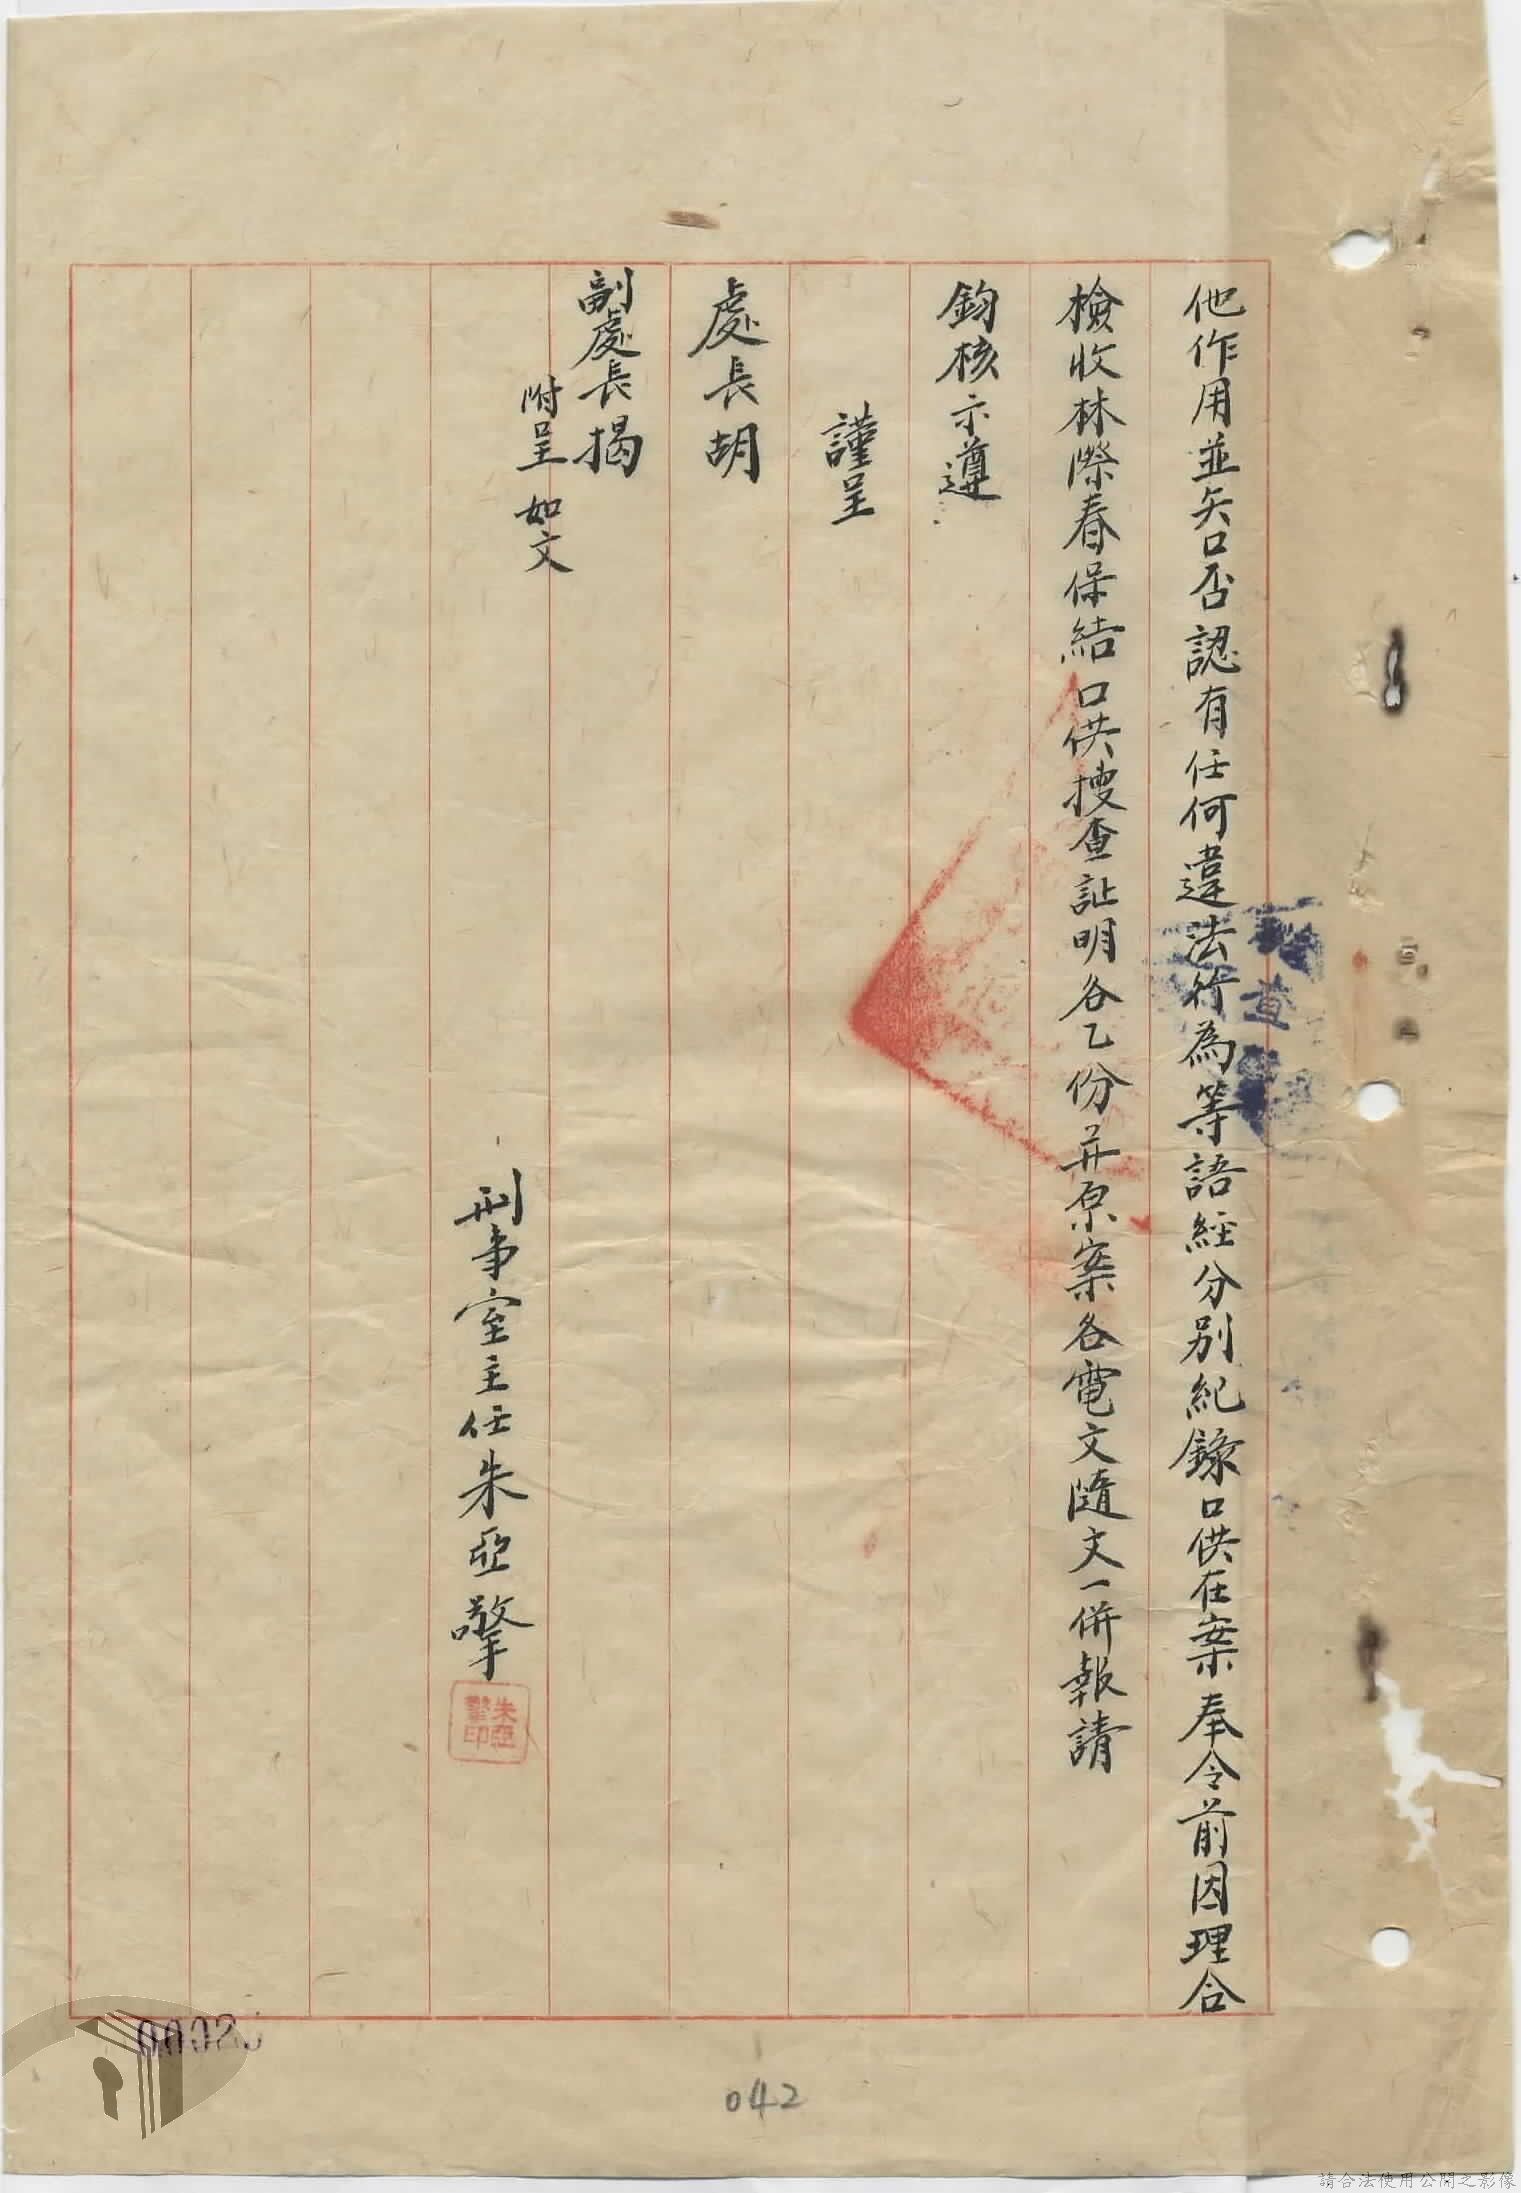 他作用並矢口否認有任何違法行為等語經分別紀錄口供在案奉令前因理合
檢收林際春保結口供搜查証明各乙份并原案各電文隨文一併報請
鈞核示遵
謹呈
處長胡
副處長揭
附呈如文
刑事室主任朱亞擎
朱亞擎印
查
0002
042
請合法使用公開之影像